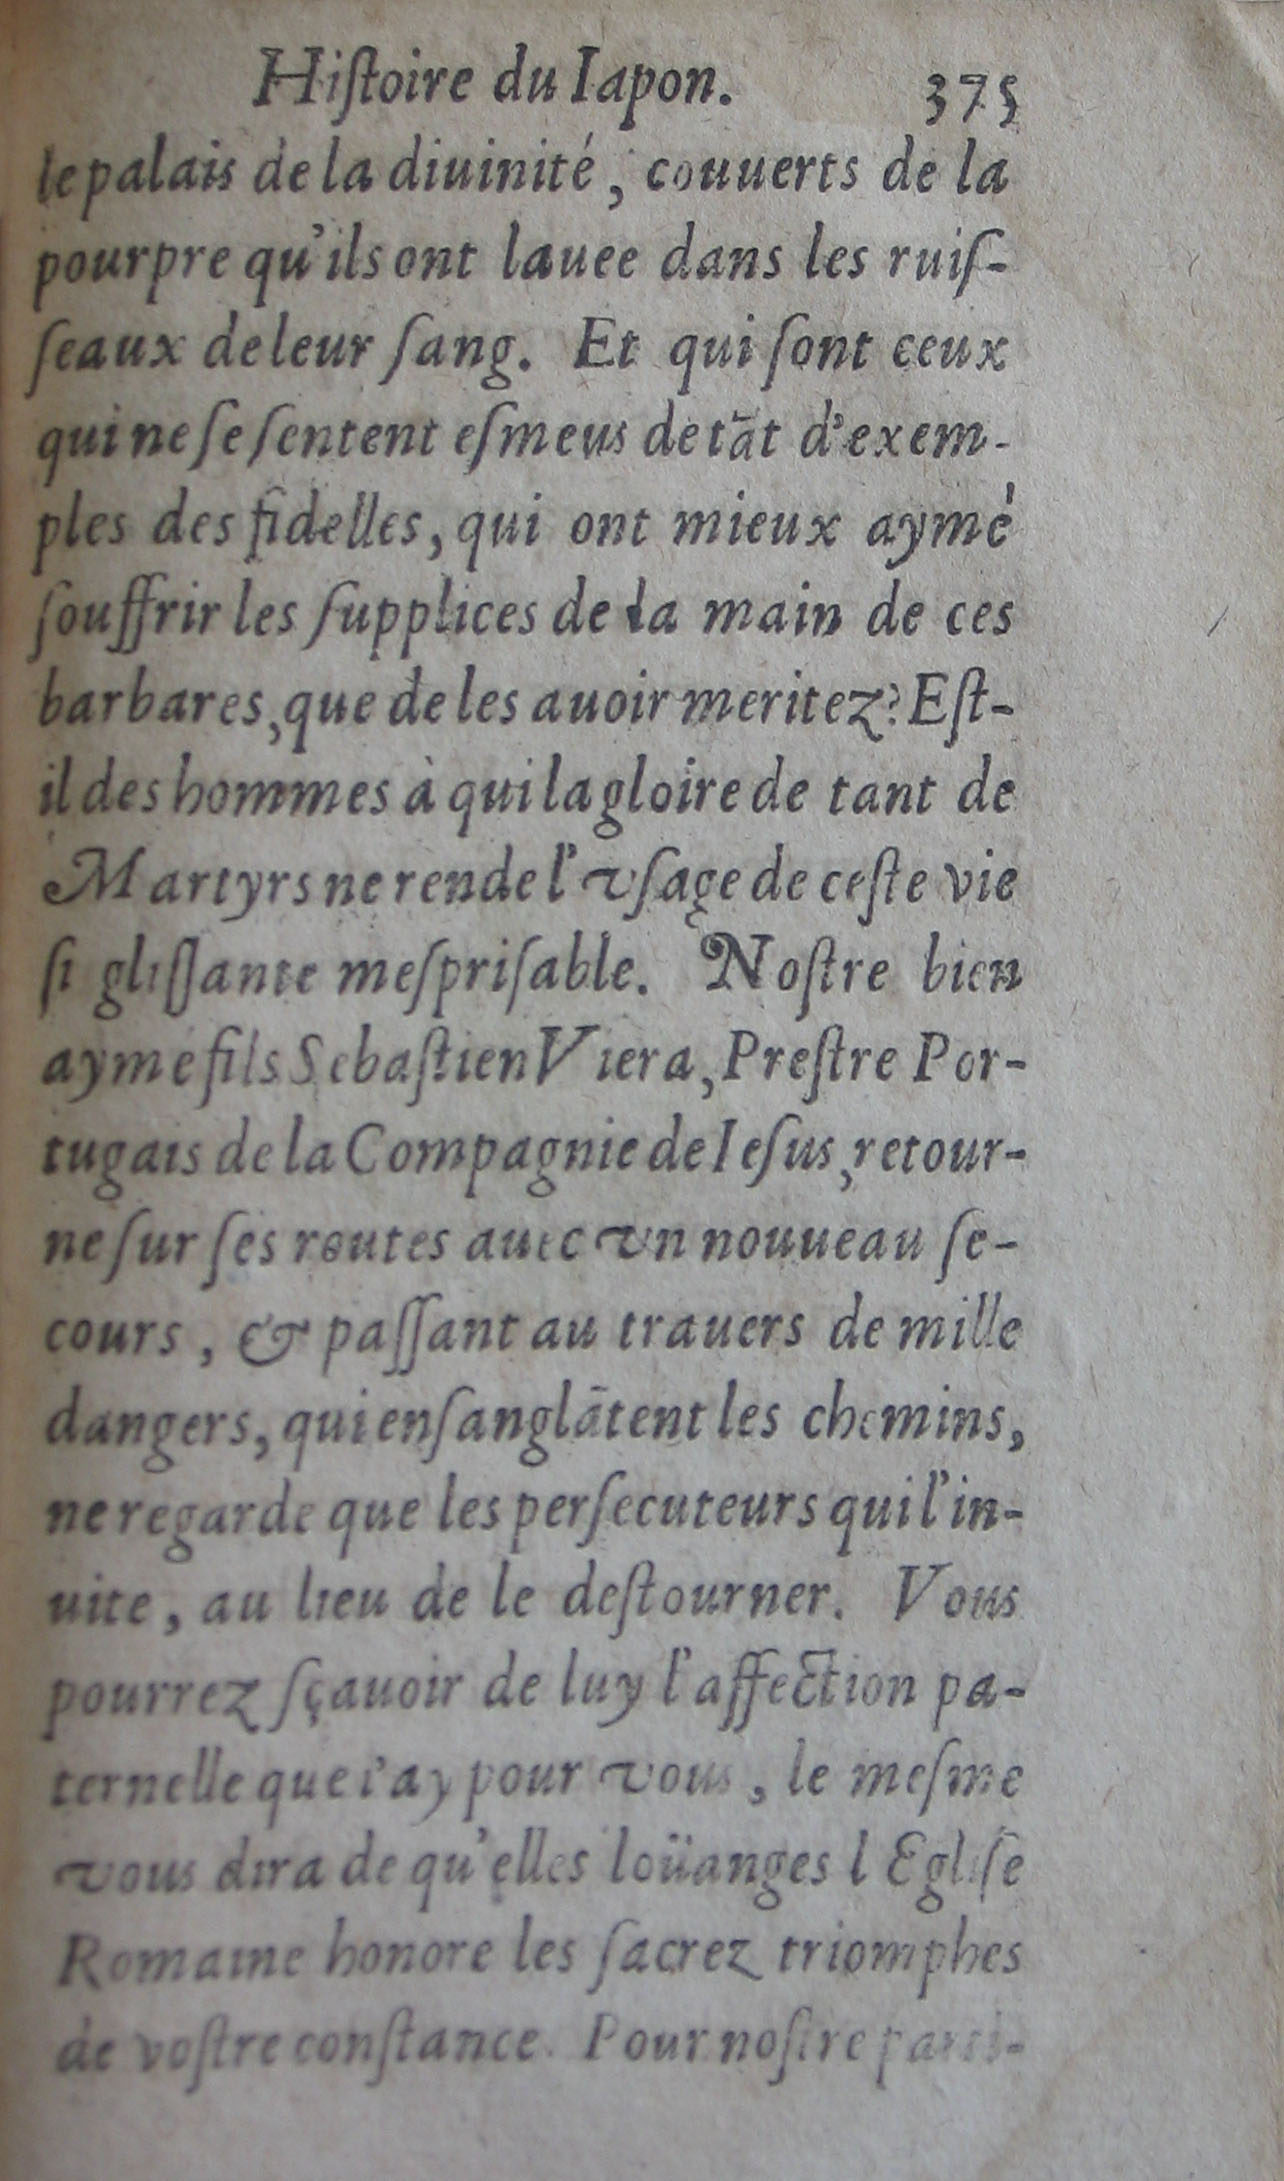 Hiſtoire du Iapon. 375
le palais de la diuinité, couuerts de la
pourpre qu'ils ont lauee dans les ruiſ-
ſeaux de leur ſang. Et qui ſont ceux
qui ne ſe ſentent eſmeus de tāt d'exem-
ples des fidelles, qui ont mieux aymé
ſouffrir les ſupplices de la main de ces
barbares, que de les auoir meritez? Eſt-
il des hommes à qui la gloire de tant de
Martyrs ne rende l'vſage de ceſte vie
ſi gliſſante meſpriſable. Noſtre bien
aymé fils Sebaſtien Viera, Preſtre Por-
tugais de la Compagnie de Ieſus, retour-
ne ſur ſes routes auec vn nouueau ſe-
cours, & paſſant au trauers de mille
dangers, qui enſanglātent les chemins,
ne regarde que les perſecuteurs qui l'in-
uite, au lieu de le deſtourner. Vous
pourrez ſçauoir de luy l'affection pa-
ternelle que i'ay pour vous, le meſme
vous dira de qu'elles loüanges l Egliſe
Romaine honore les ſacrez triomphes
de voſtre conſtance. Pour noſtre parti-